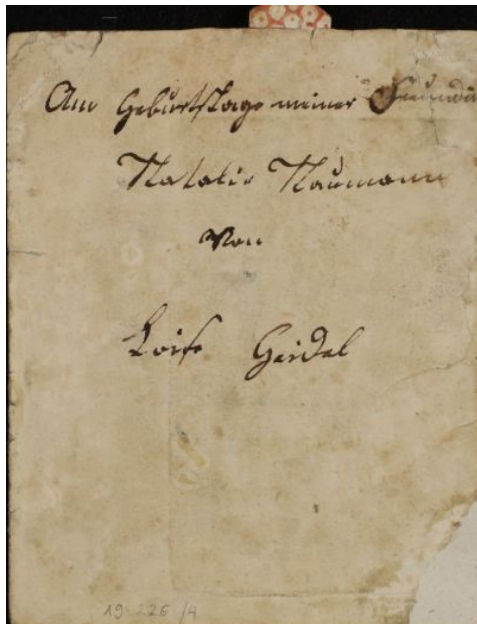 Am Geburtstage meiner Freundin
Natalie Naumann
Von
Loise Geidel
19 226 /4